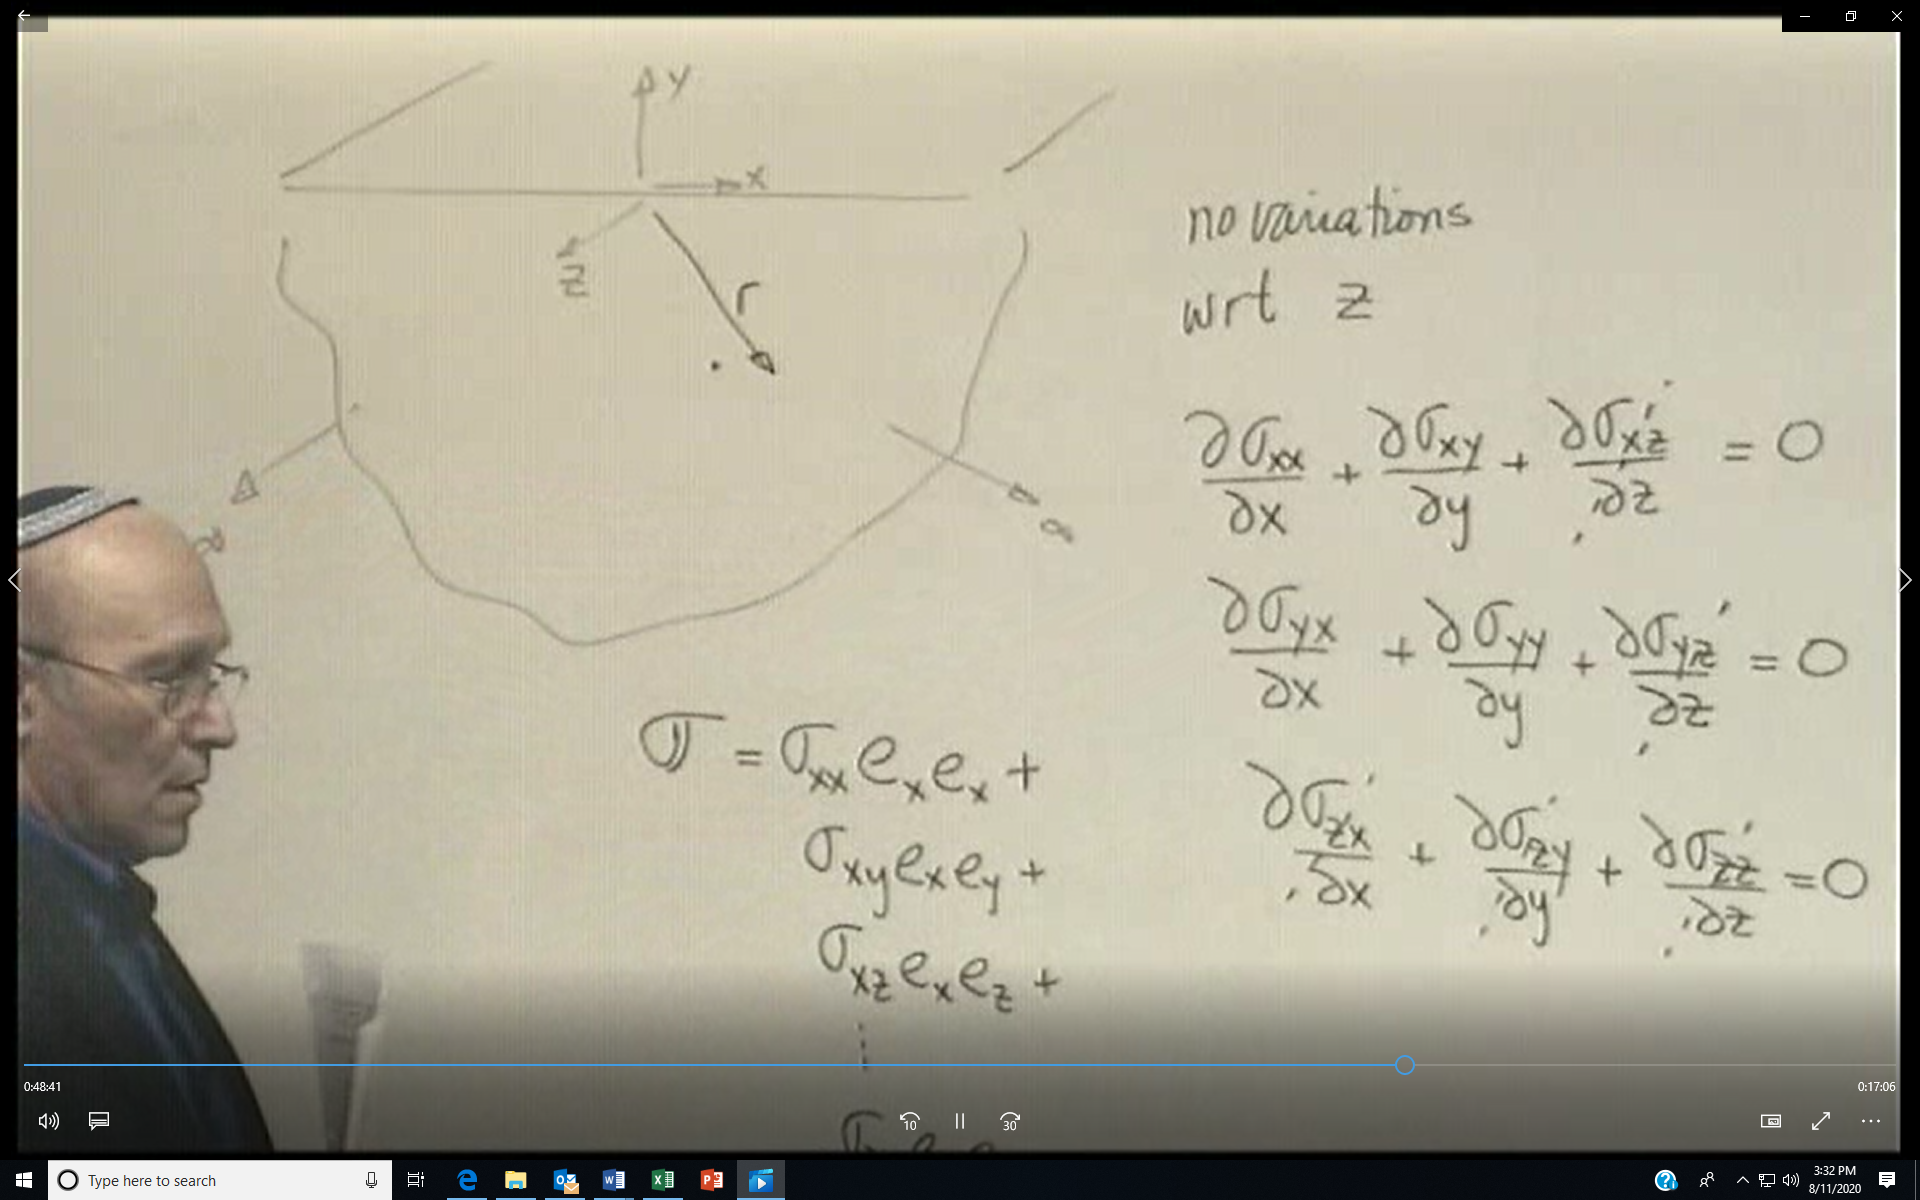 y
x
z
r
∞
no variations
wrt z
∂σxx/∂x + ∂σxy/∂y + ∂σxz/∂z = 0
∂σyx/∂x + ∂σyy/∂y + ∂σyz/∂z = 0
∂σzx/∂x + ∂σzy/∂y + ∂σzz/∂z = 0
σ = σxx ex ex +
σxy ex ey +
σxz ex ez +
0:48:41
0:17:06
10
30
Type here to search
3:32 PM
8/11/2020